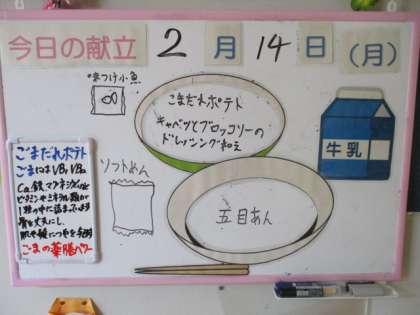 今日の献立 2月14日(月)
味つけ小魚
ごまだれポテト
キャベツとブロッコリーの
ドレッシング和え
牛乳
ソフトめん
五目あん
ごまだれポテト
ごまにはVB₁ VB₂
Ca 鉄 マグネシウムなど
ビタミンやミネラル類が
1粒の中に詰まっています
骨を丈夫にし
肌や髪につやを与える
ごまの薬膳パワー